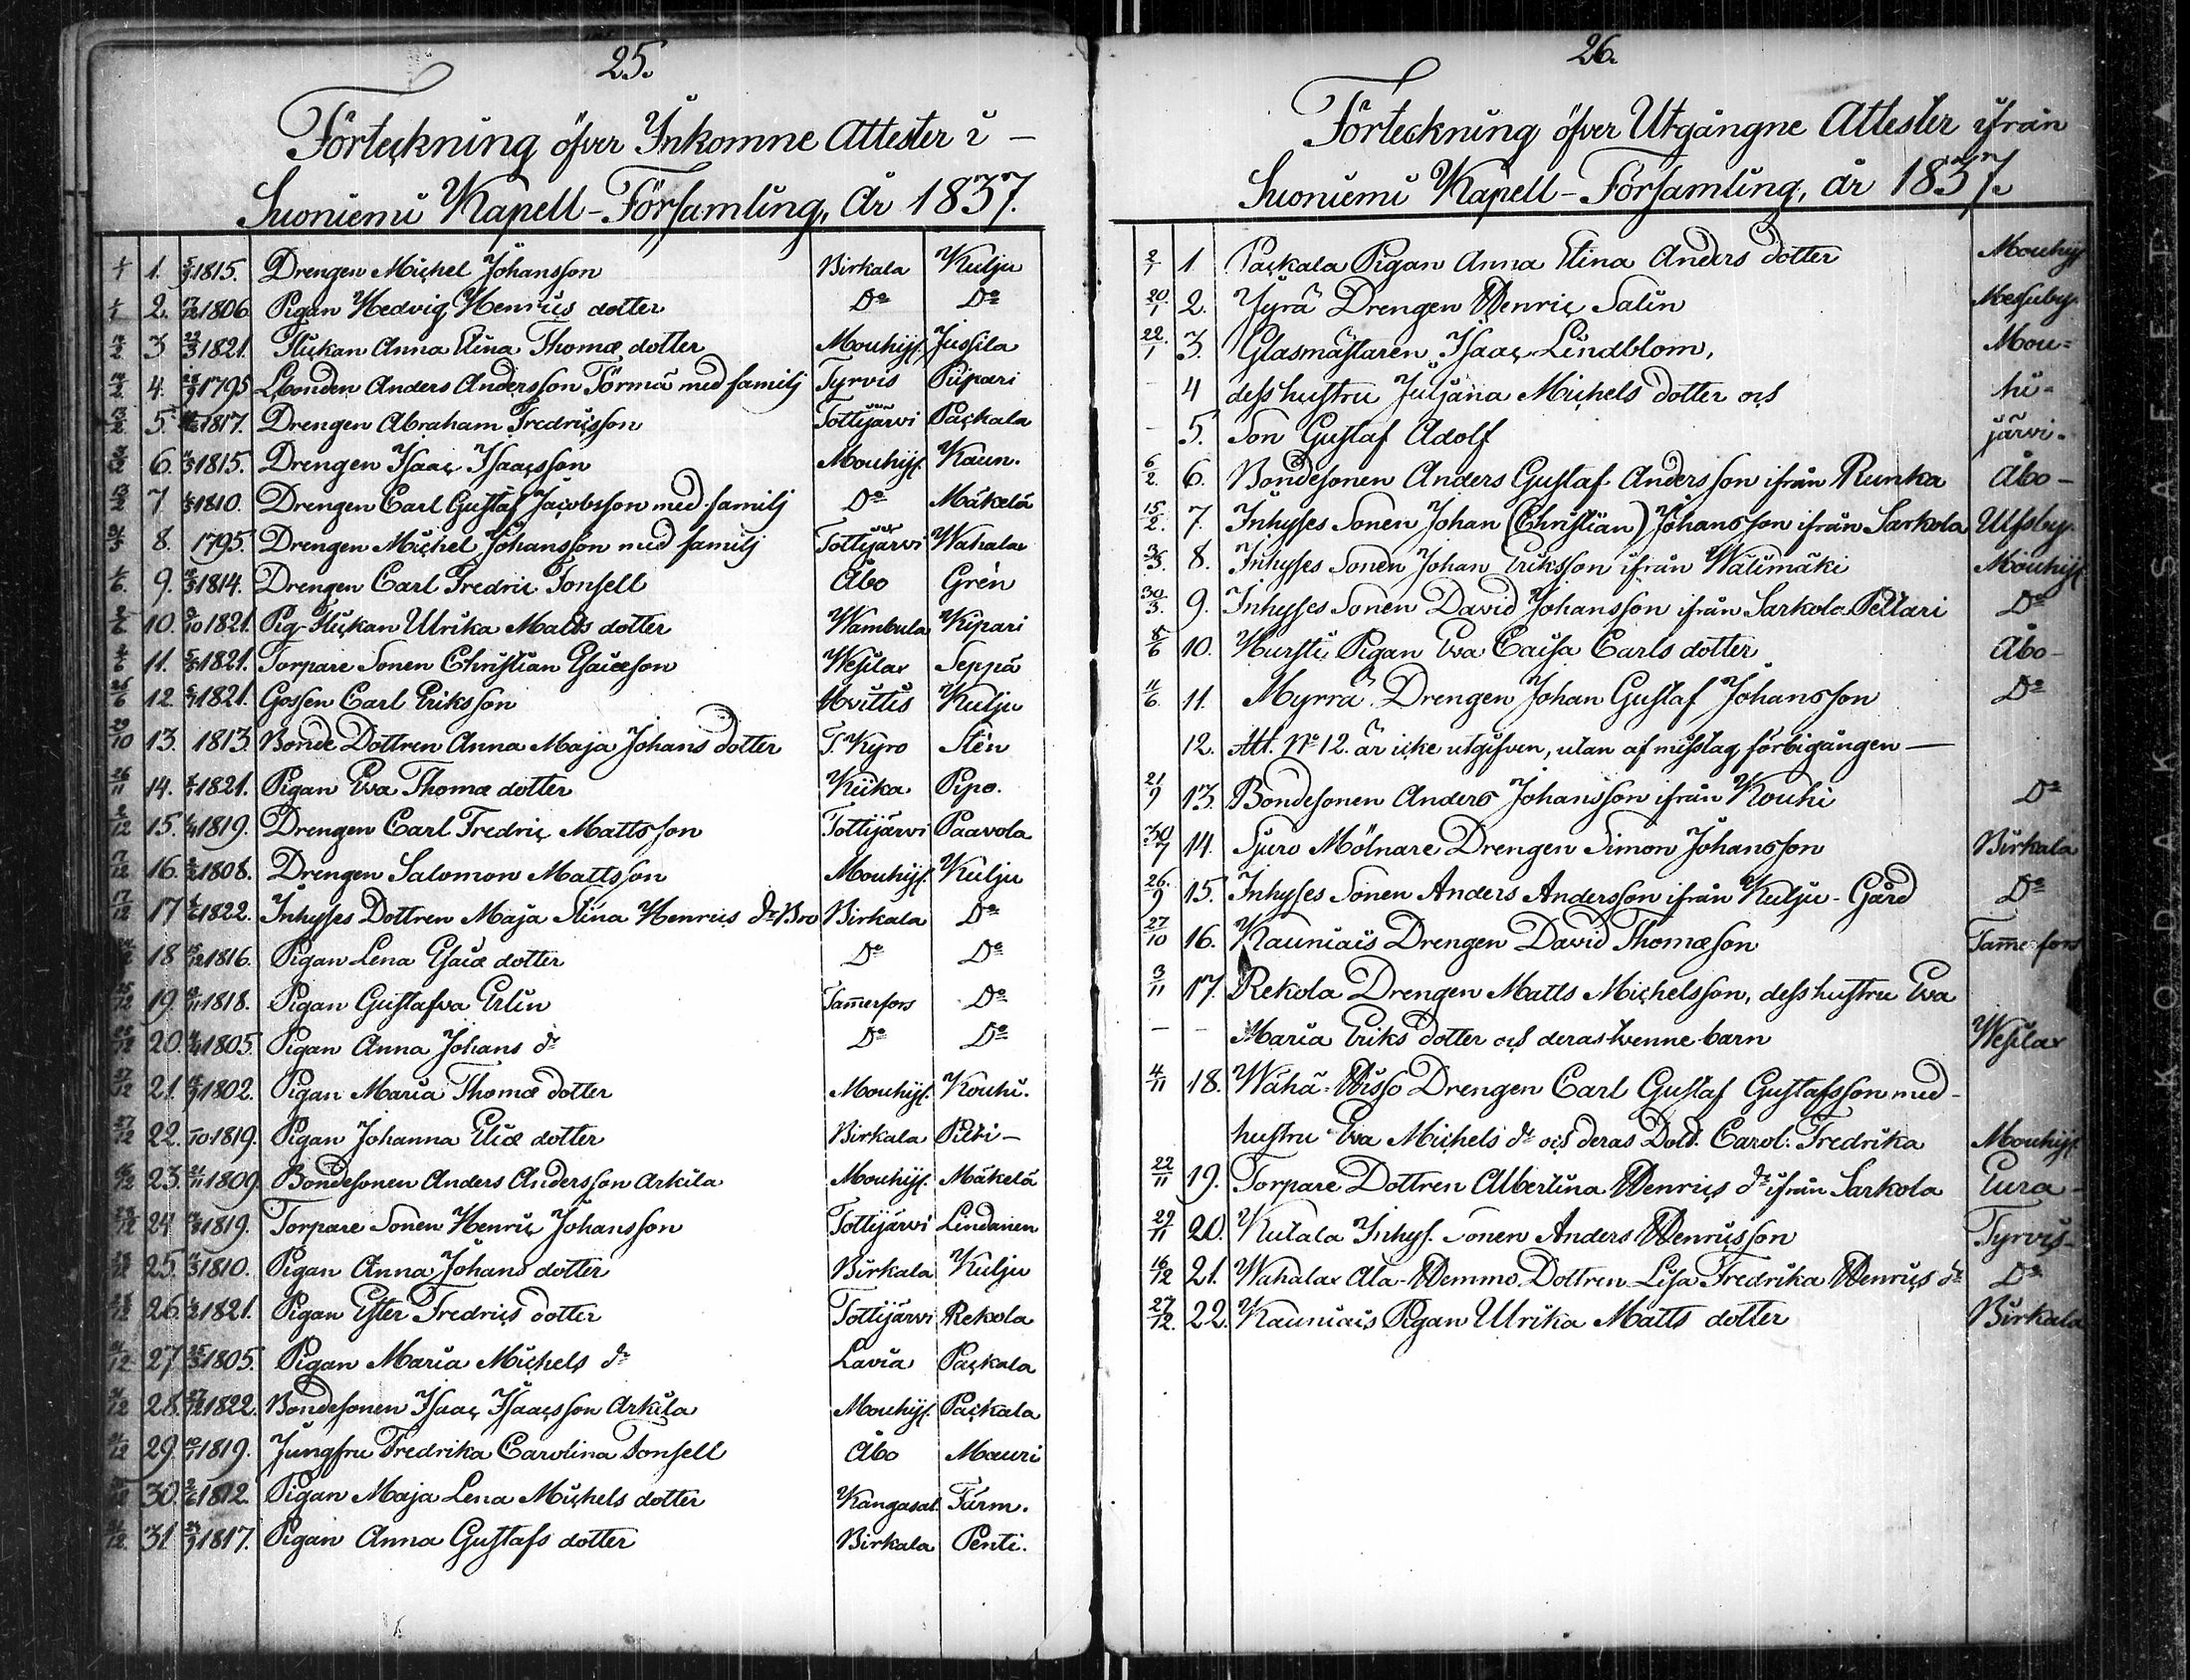 25.
Förteckning öfver Inkomne Attester i -
Suoniemi Kapell-Församling, År 1837.
1/1 1. 1815. Drengen Michel Johansson Birkala Kulju
1/1 2. 1806 Pigan Hedvig Henrics dotter Do Do
3 1821. Flickan Anna Stina Thomæ dotter Mouhij. Jussila
4. 1795 Bonden Anders Andersson Törmä med familj Tyrvis Piipari
5. 1817. Drengen Abraham Fredricsson Tottijärvi Packala
6. 1815. Drengen Isaac Isaacsson Mouhij. Kaun.
7 1810. Drengen Carl Gustaf Jacobsson med familj Do Mäkelä
8. 1795. Drengen Michel Johansson med familj Tottijärvi Wahala
9. 1814. Drengen Carl Fredric Tonsell Åbo Grén
10. 1821. Pig-Flickan Ulrika Matts dotter Wambula Kipari
11. 1821. Torpare Sonen Christian Esaiæson Wesilax Seppä
12. 1821. Gossen Carl Eriksson Hvittis Kulju
29/10 13. 1813. Bonde Dottren Anna Maja Johans dotter T. Kyro Stén
26/11 14. 1821. Pigan Eva Thomæ dotter Kiika Pipo.
15. 1819. Drengen Carl Fredric Mattsson Tottijärvi Paavola
17/12 16. 1808. Drengen Salomon Mattsson Mouhij. Kulju
17/12 17 1822. Inhyses Dottren Maja Stina Henrics dr Bro Birkala Do
18 1816. Pigan Lena Esaiæ dotter Do Do
19. 1818. Pigan Gustafva Erlin Tamerfors Do
20. 1805. Pigan Anna Johans dr Do Do
27/12 21. 1802. Pigan Maria Thomæ dotter Mouhij. Kouhi.
27/12 22. 1819. Pigan Johanna Eliæ dotter Birkala -
23. 1809. Bondesonen Anders Andersson Arkila Mouhij. Mäkelä
24 1819. Torpare Sonen Henric Johansson Tottijärvi Lindanen
25. 1810. Pigan Anna Johans dotter Birkala Kulju
26. 1821. Pigan Ester Fredrics dotter Tottijärvi Rekola
27 1805. Pigan Maria Michels dr Lavia Packala
28. 1822. Bondesonen Isaac Isaacsson Arkila Mouhij. Packala
29. 1819. Jungfru Fredrika Carolina Tonsell Åbo Mauri
30. 1812. Pigan Maja Lena Michels dotter Kangasal. Tärm.
31 1817. Pigan Anna Gustafs dotter Birkala Penti.
26.
Förteckning öfver Utgångne Attester ifrån
Suoniemi Kapell-Församling, år 1837.
2/1 1 Packala Pigan Anna Stina Anders dotter Mouhij
20/1 2. Jyrä Drengen Henric Salin Messuby
22/1 3. Glasmästaren Isaac Lindblom, Mou=
- 4 dess hustru Juljana Michels dotter och hi=
- 5. Son Gustaf Adolf järvi.
6/2 6. Bondesonen Anders Gustaf Andersson ifrån Runka Åbo -
15/2. 7. Inhyses Sonen Johan (Christian) Johansson ifrån Sarkola Ulfsby.
8. Inhyses Sonen Johan Eriksson ifrån Wälimäki Mouhij.
30/3. 9. Inhyses Sonen David Johansson ifrån Sarkola Peltari Do
10. Hursti Pigan Eva Caisa Carls dotter Åbo -
11/6. 11. Myrrä Drengen Johan Gustaf Johansson Do
12. Att. No 12. är icke utgifven, utan af misstag förbigången -
13. Bondesonen Anders Johansson ifrån Kouhi Do
30/7 14. Sjuro Mölnare Drengen Simon Johansson Birkala
26/9 15. Inhyses Sonen Anders Andersson ifrån Kulju-Gård Do
27/10 16. Kauniais Drengen David Thomæson Tamefors
3/11 17. Rekola Drengen Matts Michelsson, dess hustru Eva
- - Maria Eriks dotter och deras tvenne barn Wesilax
4/11 18. Wähä-Hisso Drengen Carl Gustaf Gustafsson med -
hustru Eva Michels dr och deras Dott. Carol: Fredrika Mouhij.
22/11 19. Torpare Dottren Albertina Henrics dr ifrån Sarkola Eura -
29/11 20. Kutala Inhys. Sonen Anders Henricsson Tyrvis -
16/12 21. Wahalax Ala-Hemmo Dottren Lisa Fredrika Henrics dr Do
27/12. 22. Kauniais Pigan Ulrika Matts dotter Birkala
KODAK SAFETY